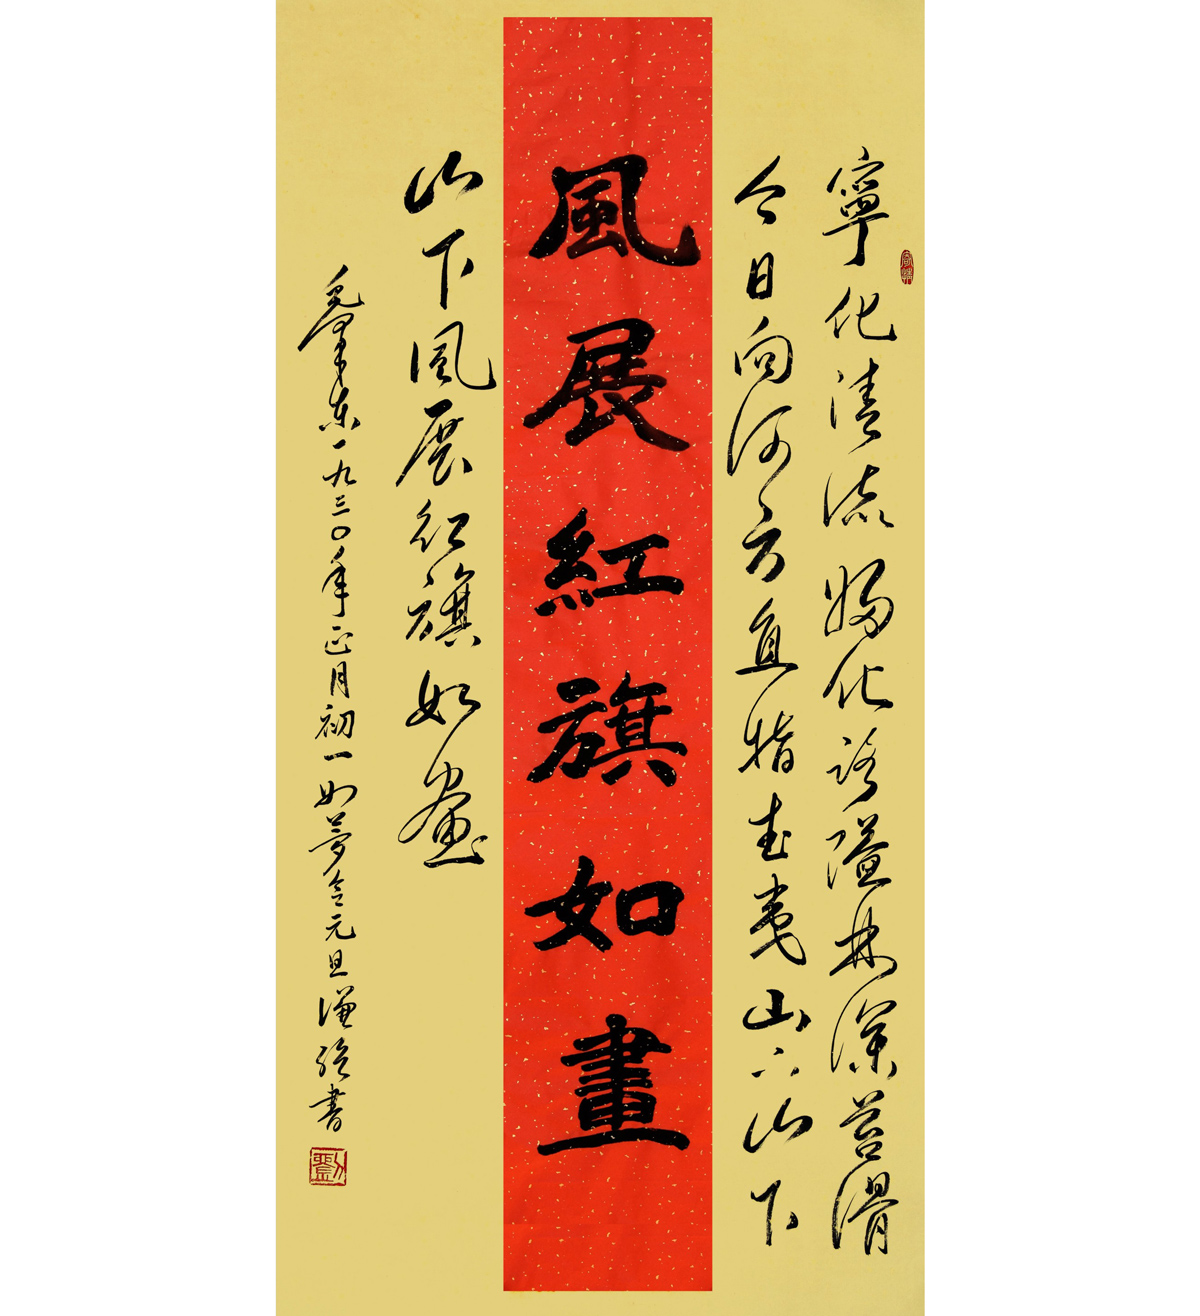 寧化清流歸化路隘林深苔滑
今日向何方直指武夷山下山下
風展紅旗如畫
山下風展紅旗如畫
毛澤東一九三〇年正月初一如夢令元旦書
劉